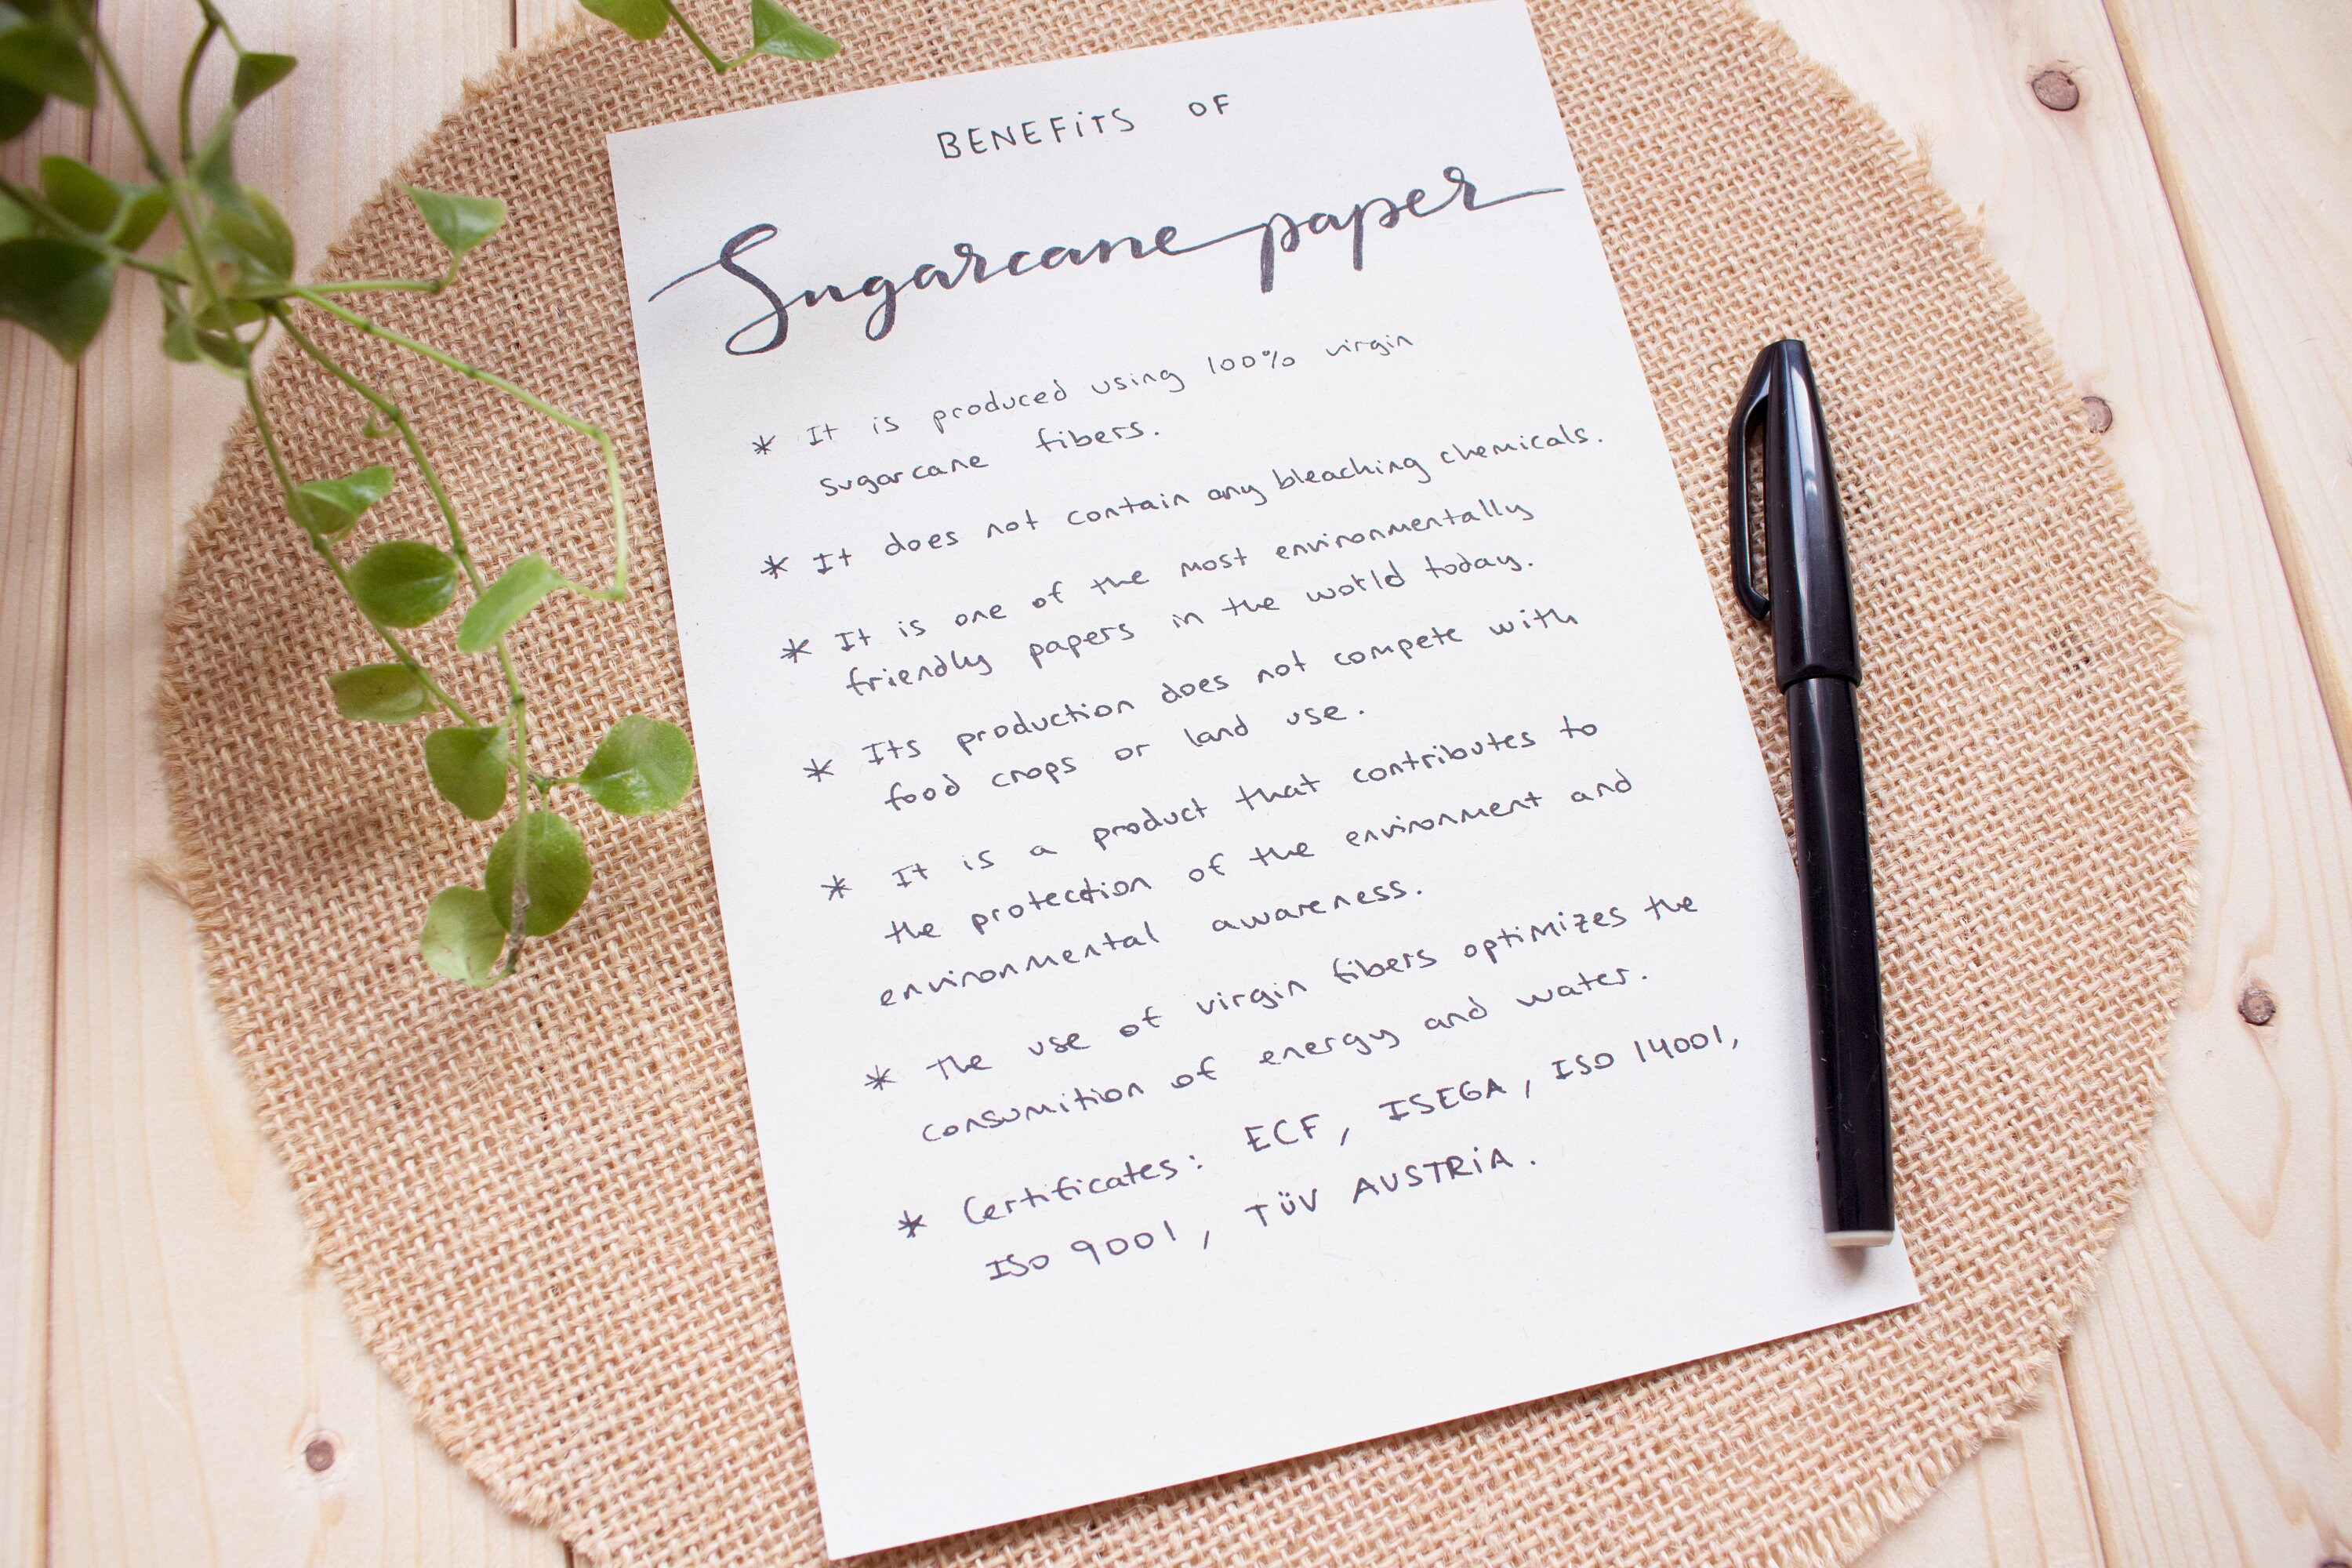 BENEFiTS OF
Sugarcane paper
* It is produced using 100% virgin
sugarcane fibers.
* It does not contain any bleaching chemicals.
* It is one of the most environmentally
friendly papers in the world today.
* Its production does not compete with
food crops or land use.
* It is a product that contributes to
the protection of the environment and
environmental awareness.
* The use of virgin fibers optimizes the
consumition of energy and water.
* Certificates: ECF, ISEGA, ISO 14001,
ISO 9001, TÜV AUSTRiA.